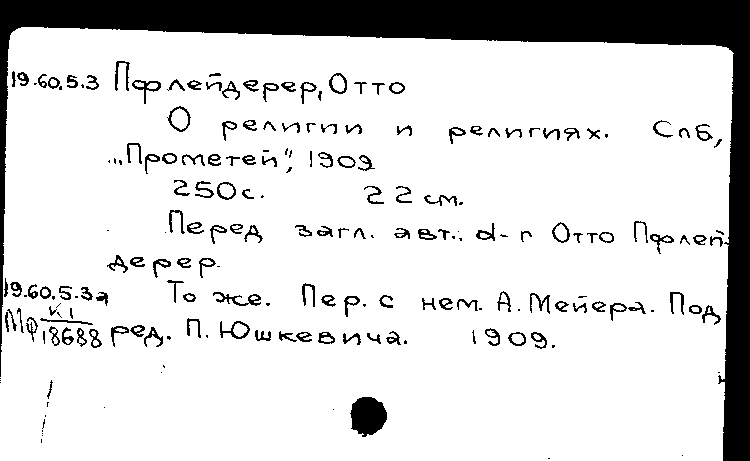 19.60.5.3 Пфлейдерер, Отто
О религии и религиях. Спб,
„Прометей“, 1909
250 с. 22 см.
Перед загл. авт.: d-r Отто Пфлей-
дерер.
19.60.5.3а То же. Пер. с нем. А. Мейера. Под
К1
Мф 18688 ред. П. Юшкевича. 1909.